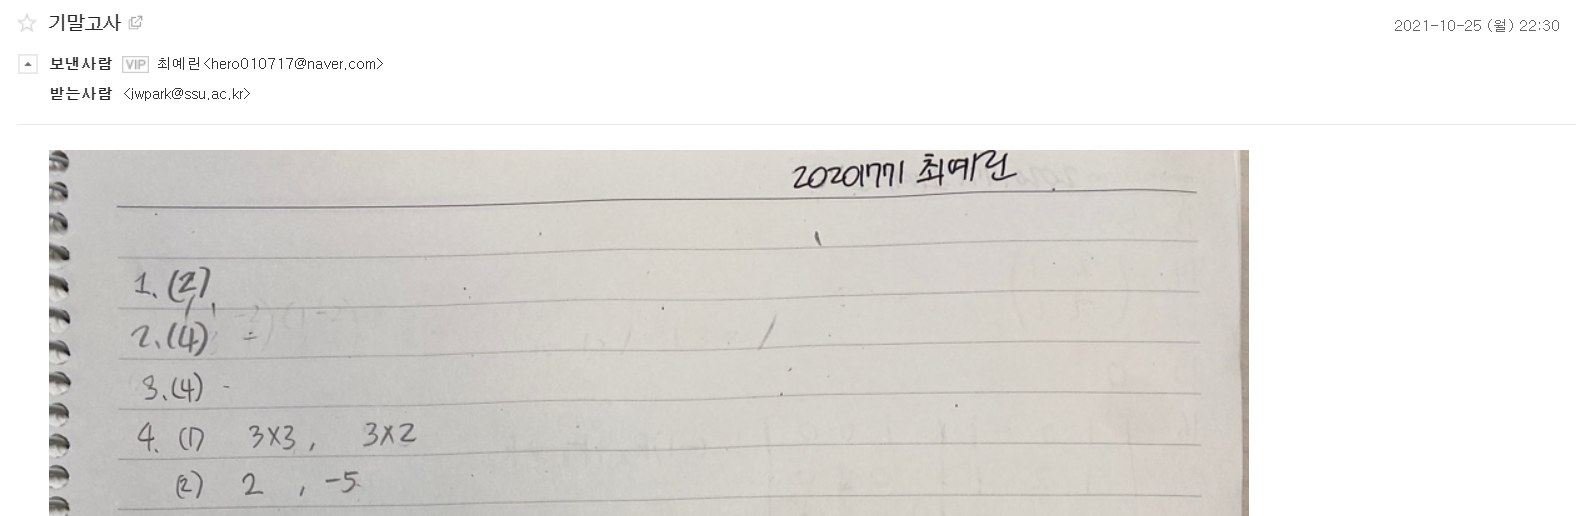 기말고사
2021-10-25 (월) 22:30
보낸사람 VIP 최예린<hero010717@naver.com>
받는사람 <iwpark@ssu.ac.kr>
20201771 최예린
1. (2)
2. (4)
3. (4)
4. (1) 3×3, 3×2
(2) 2, -5